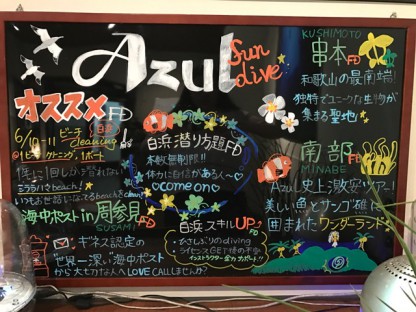 Azul
Sun
dive
オススメFD
6/10-11 ビーチ
cleaning
1年に1回しか潜れない
beach!
いつもお世話になってるbeachを
海中ポスト in 周参見
SUSAMI
FD
ギネス認定の
世界一深い海中ポスト
から大切な人へLOVE CALLしませんか?
白浜潜り放題FD
本数無制限!!
体力に自信がある人〜♡
♡come on♡
白浜スキルUP↑
FD
・ひさしぶりのdiving
・ライセンスGET後の不安
インストラクター全力サポート!!
KUSHIMOTO
串本
FD
和歌山の最南端!
独特でユニークな生物が
集まる聖地
南部FD
MINABE
Azul史上激安ツアー
美しい魚とサンゴ礁に
囲まれたワンダーランド